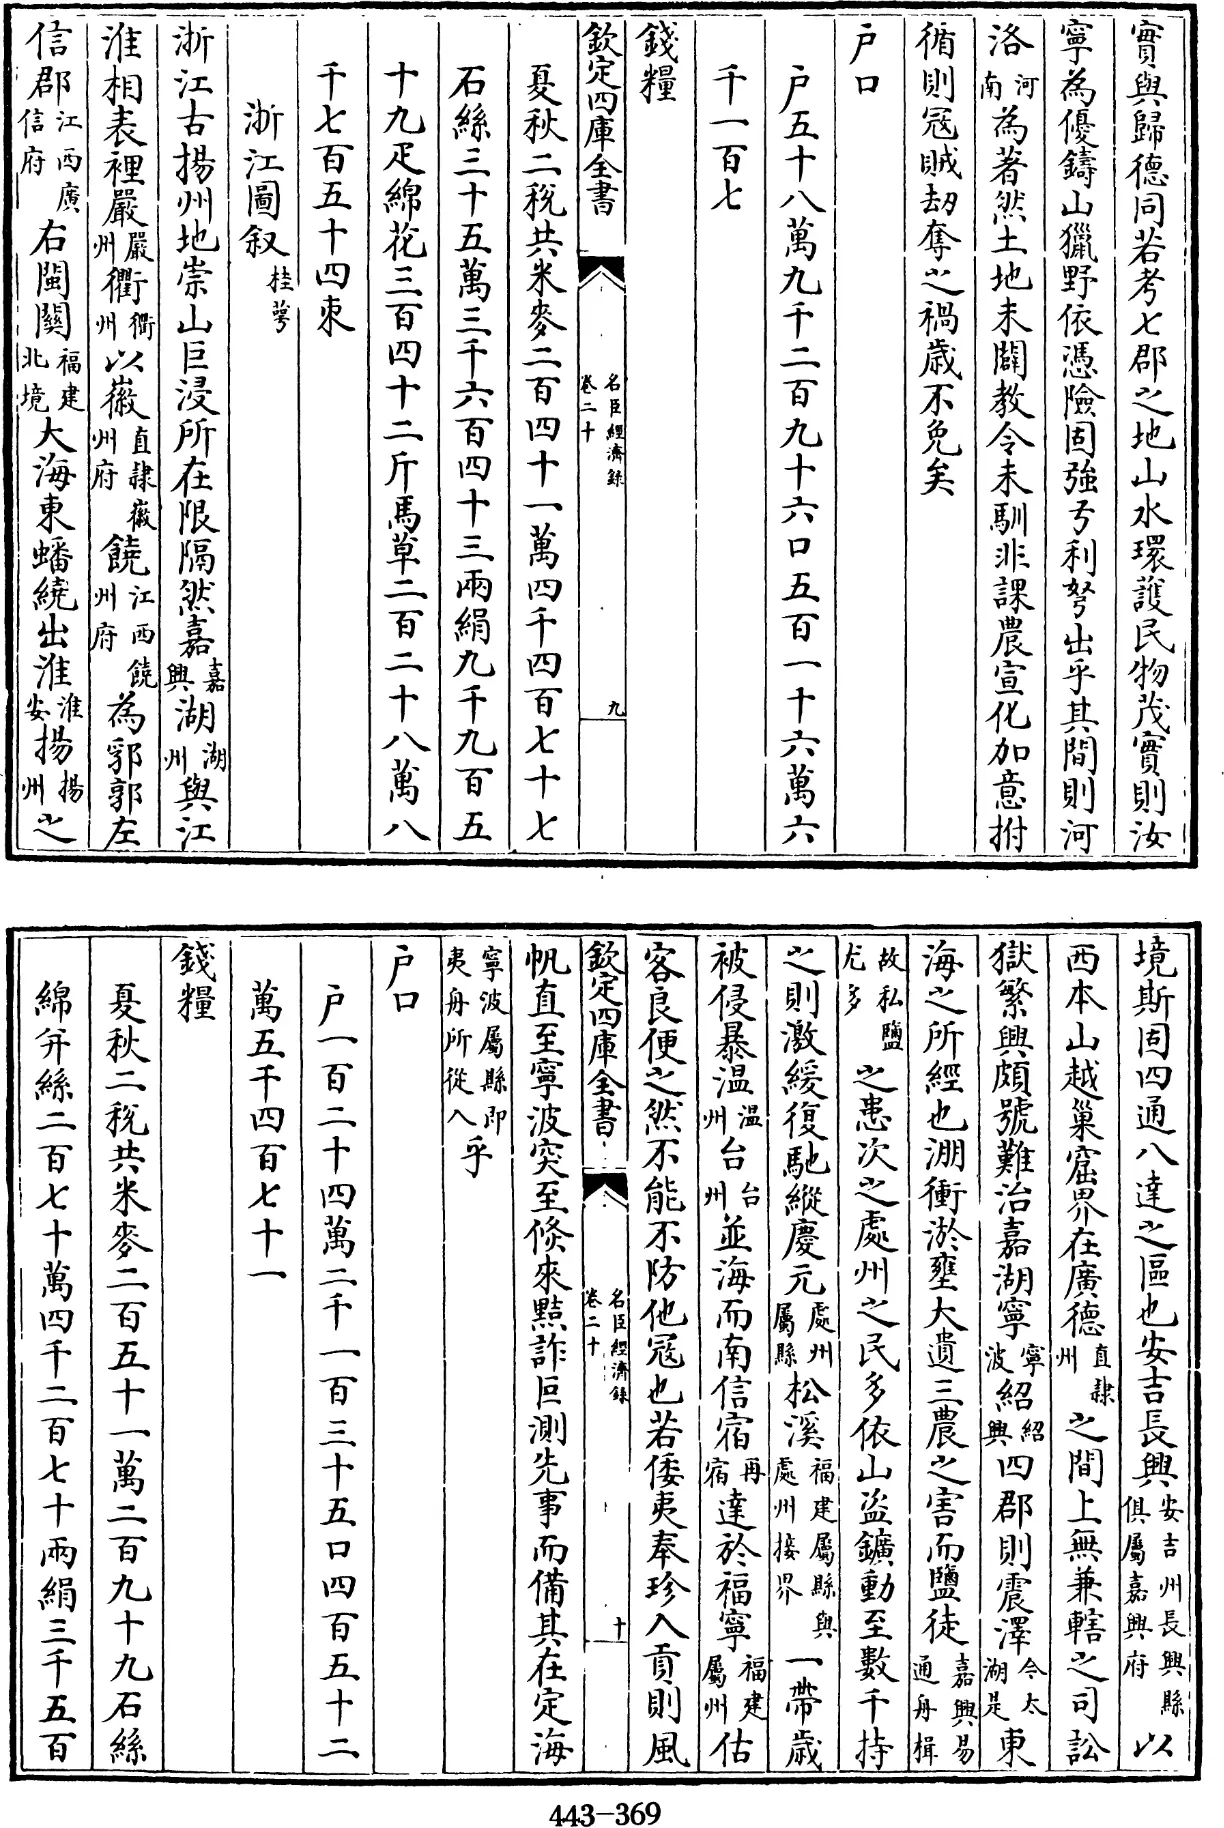 實與歸德同若考七郡之地山水環護民物茂實則汝
寧為優鑄山獵野依憑險固強弓利弩出乎其間則河
洛河南為著然土地未闢教令未馴非課農宣化加意拊
循則冦賊劫奪之禍歳不免矣
户口
户五十八萬九千二百九十六口五百一十六萬六
千一百七
錢糧
欽定四庫全書
名臣經濟録
卷二十
九
夏秋二稅共米麥二百四十一萬四千四百七十七
石絲三十五萬三千六百四十三兩絹九千九百五
十九疋綿花三百四十二斤馬草二百二十八萬八
千七百五十四束
浙江圖叙桂萼
浙江古揚州地崇山巨浸所在限隔然嘉嘉興湖湖州與江
淮相表裡嚴嚴州衢衢州以徽直隷徽州府饒江西饒州府為郛郭左
信郡江西廣信府右閩關福建北境大海東蟠繞出淮淮安揚揚州之
境斯固四通八達之區也安吉長興安吉州長興縣俱屬嘉興府以
西本山越巢窟界在廣德直隷州之間上無兼轄之司訟
獄繁興頗號難治嘉湖寧寧波紹紹興四郡則震澤今太湖是東
海之所經也淜衝淤壅大遺三農之害而鹽徒嘉興易通舟楫
故私鹽尤多之患次之處州之民多依山盗鑛動至數千持
之則激緩復馳縱慶元處州屬縣松溪福建屬縣與處州接界一帶歳
被侵暴温温州台台州並海而南信宿再宿達於福寧福建屬州估
客良便之然不能不防他冦也若倭夷奉珍入貢則風
欽定四庫全書
名臣經濟録
卷二十
十
帆直至寧波突至倏來黠詐叵測先事而備其在定海
寧波屬縣即夷舟所從入乎
户口
户一百二十四萬二千一百三十五口四百五十二
萬五千四百七十一
錢糧
夏秋二稅共米麥二百五十一萬二百九十九石絲
綿并絲二百七十萬四千二百七十兩絹三千五百
443-369